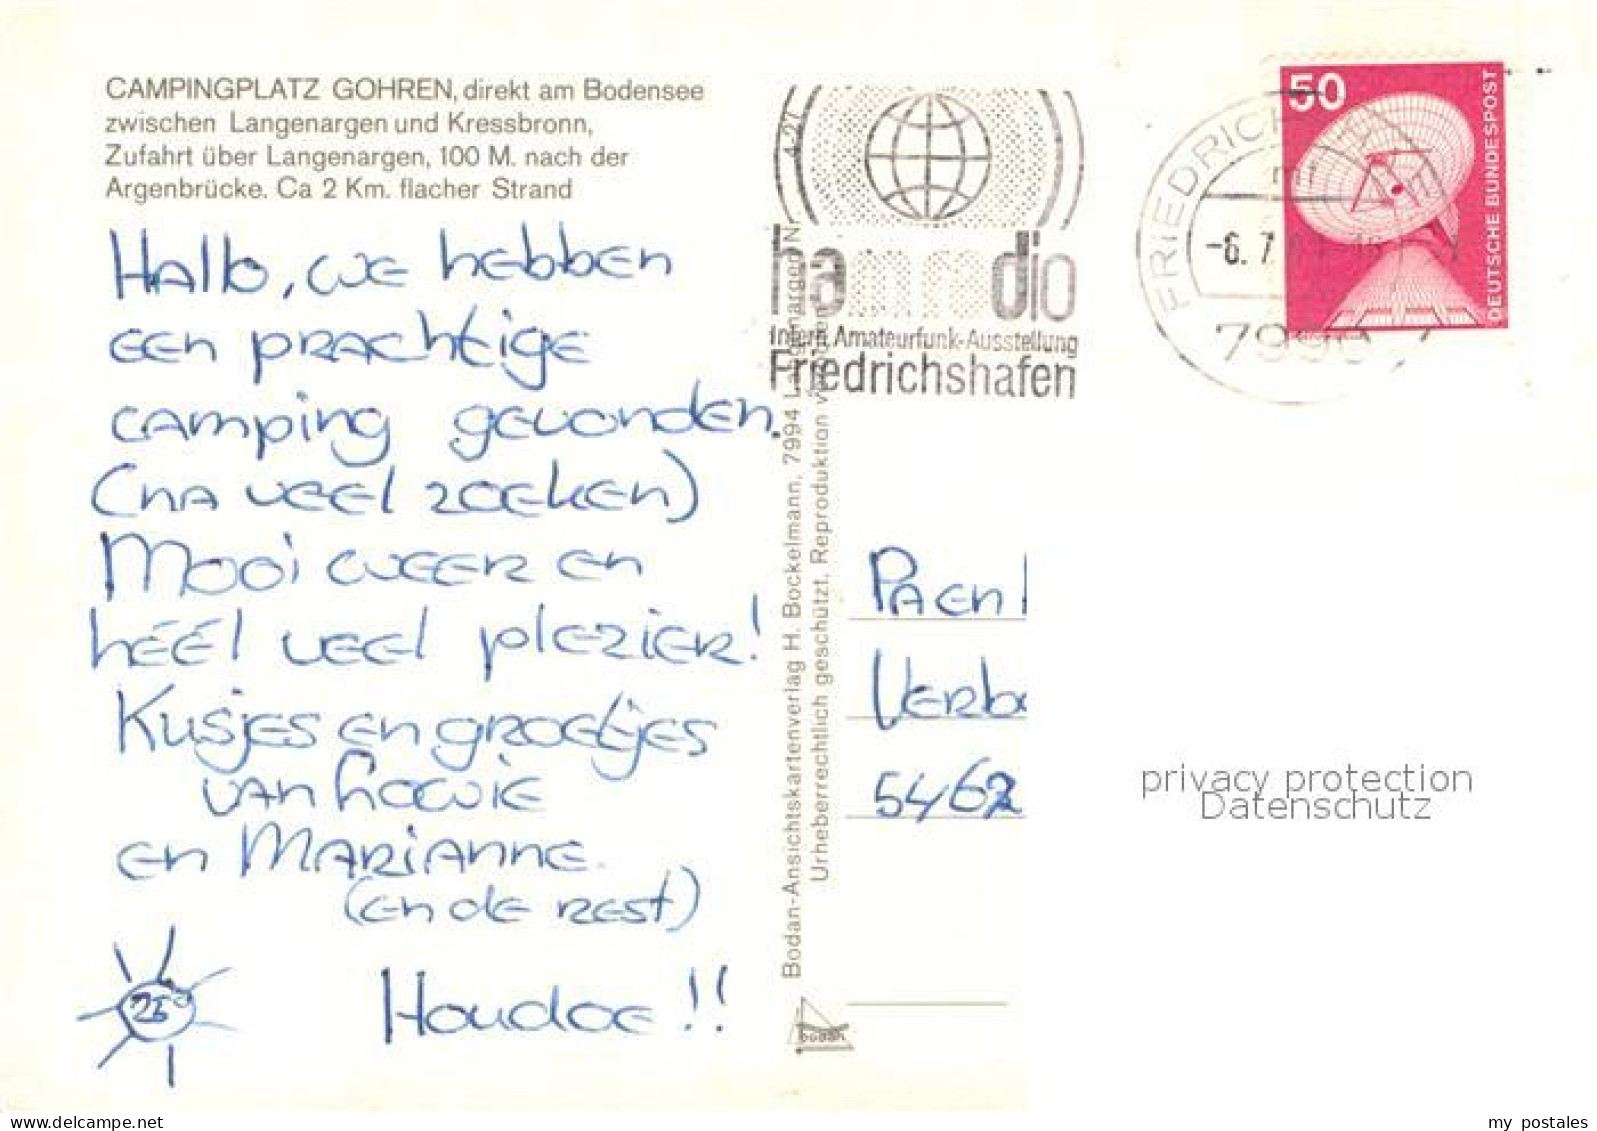 CAMPINGPLATZ GOHREN, direkt am Bodensee
zwischen Langenargen und Kressbronn,
Zufahrt über Langenargen, 100 M. nach der
Argenbrücke. Ca 2 Km. flacher Strand
Hallo, we hebben
een prachtige
camping gevonden.
(na veel zoeken)
Mooi weer en
héél veel plezier!
Kusjes en groetjes
van
en Marianne.
(en de rest)
25°
Houdoe!!
4-27
ham radio
Intern. Amateurfunk-Ausstellung
Friedrichshafen
Bodan-Ansichtskartenverlag H. Bockelmann, 7994 Langenargen
Urheberrechtlich geschützt. Reproduktion
bodan
FRIEDRICHSH
-6. 7.
7990
50
DEUTSCHE BUNDESPOST
Paen
Verb
5462
privacy protection
Datenschutz
my postales